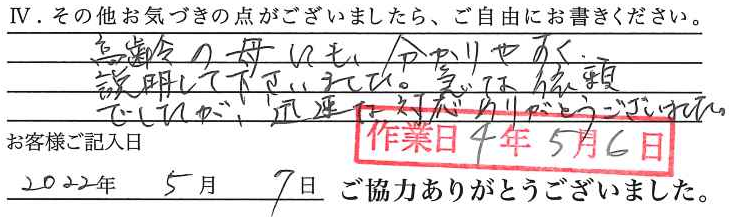 Ⅳ．その他お気づきの点がございましたら、ご自由にお書きください。
高齢の母にも、分かりやすく
説明して下さいました。急な依頼
でしたが、迅速な対応ありがとうございました。
お客様ご記入日
作業日 4年 5月 6日
2022年 5月 7日 ご協力ありがとうございました。